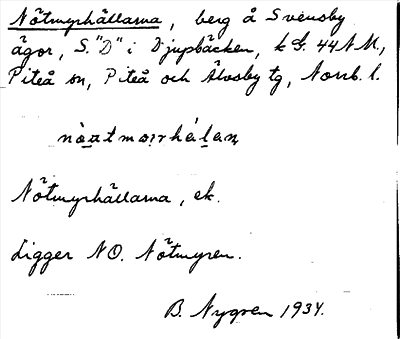 Nötmyrhällarna, berg å Svensby
ägor, S. "D" i Djupbäcken, k bl. 44 N M.,
Piteå sn, Piteå och Älvsby tg, Norrb. l.
Nötmyrhällarna, ek.
Ligger NO. Nötmyren.
B. Nygren 1934.